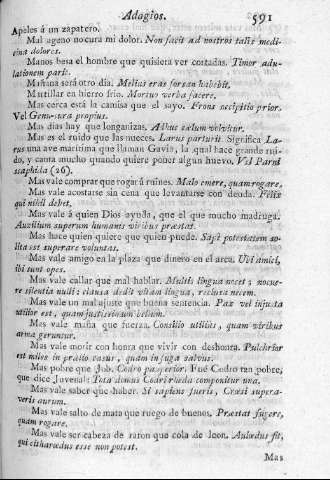 Adagios. 591
Apeles á un zapatero.
Mal ageno nocura mi dolor. Non facit ad nostros talis medi-
cina dolores.
Manos besa el hombre que quisiera ver cortadas. Timor adu-
lationem parit.
Mañana será otro dia. Melius eras forsan habebit.
Martillar en hierro frio. Mortuo verba facere.
Mas cerca está la camisa que el sayo. Frons occipitio prior.
Vel Genu sura propius.
Mas dias hay que longanizas. Adhuc cælum volvitur.
Mas es el ruido que las nueces. Larus parturit. Significa La-
rus una ave maritima que llaman Gavia, la qual hace grande rui-
do, y canta mucho quando quiere poner algun huevo. Vel Parni
scaphula (26).
Mas vale comprar que rogar á ruines. Malo emere, quam rogare.
Mas vale acostarse sin cena que levantarse con deuda. Felix
qui nihil debet.
Mas vale á quien Dios ayuda, que el que mucho madruga.
Auxilium superum humanis viribus præstat.
Mas hace quien quiere que quien puede. Sæpè potestatem so-
lita est superare voluntas.
Mas vale amigo en la plaza que dinero en el arca. Ubi amici,
ibi sunt opes.
Mas vale callar que mal hablar. Multis lingua nocet; nocue-
re silentia nulli: clausa dedit vitam lingua, reclusa necem.
Mas vale un mal ajuste que buena sentencia. Pax vel injusta
utilior est, quam justissimum bellum.
Mas vale maña que fuerza. Consilio utilius, quam viribus
arma geruntur.
Mas vale morir con honra que vivir con deshonra. Pulchrior
est miles in prælio casus, quam in fuga salvus.
Mas pobre que Job. Codro pauperior. Fué Codro tan pobre,
que dice Juvenal: Tota domus Codri rheda componitur una.
Mas vale saber que haber. Si sapiens fueris, Crœsi supera-
veris aurum.
Mas vale salto de mata que ruego de buenos. Præstat fugere,
quam rogare.
Mas vale ser cabeza de raton que cola de leon. Aulædus fit,
qui citharœdus esse non potest.
Mas